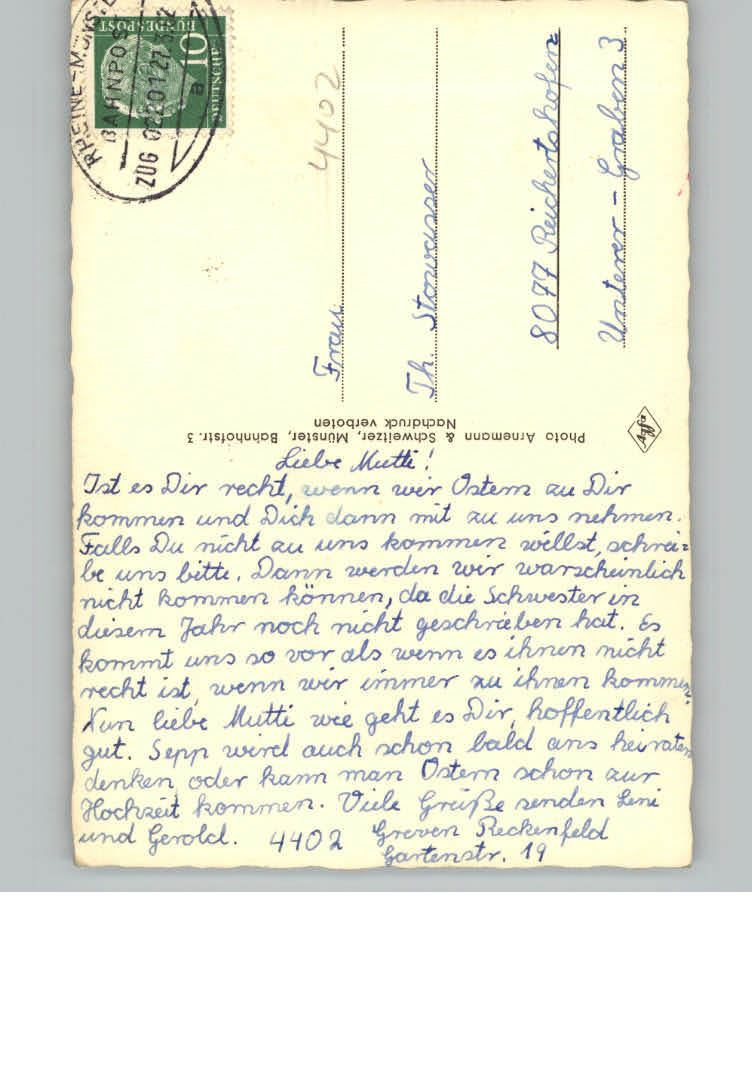 Liebe Mutti!
Ist es Dir recht, wenn wir Ostern zu Dir
kommen und Dich dann mit zu uns nehmen.
Falls Du nicht zu uns kommen willst, schrei=
be uns bitte. Dann werden wir warscheinlich
nicht kommen können, da die Schwester in
diesem Jahr noch nicht geschrieben hat. Es
kommt uns so vor als wenn es ihnen nicht
recht ist, wenn wir immer zu ihnen kommen.
Nun liebe Mutti wie geht es Dir, hoffentlich
gut. Sepp wird auch schon bald ans heiraten
denken, oder kann man Ostern schon zur
Hochzeit kommen. Viele Grüße senden Leni
und Gerold. 4402 Greven Reckenfeld
Gartenstr. 19
Photo Arnemann & Schweitzer, Münster, Bahnhofstr. 3
Nachdruck verboten
Agfa
4402
Frau
Th. Stowasser
8077 Reichertshofen
Unterer - Graben 3
DEUTSCHE
BUNDESPOST
10
BAHNPOST
ZUG
a